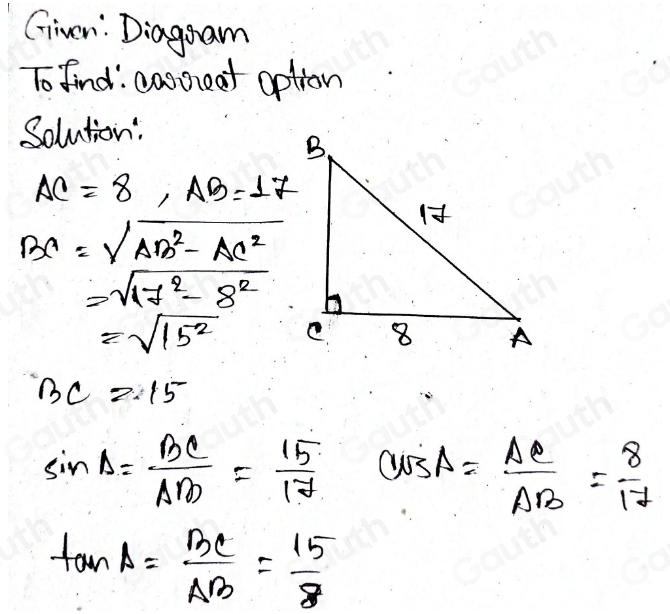 Given: Diagram
To find: correct option
Solution:
AC = 8 , AB = 17
BC = √AB² - AC²
= √17² - 8²
= √15²
BC = 15
B
17
C
8
A
sin A = BC/AB = 15/17
cos A = AC/AB = 8/17
tan A = BC/AB = 15/8
Gauth